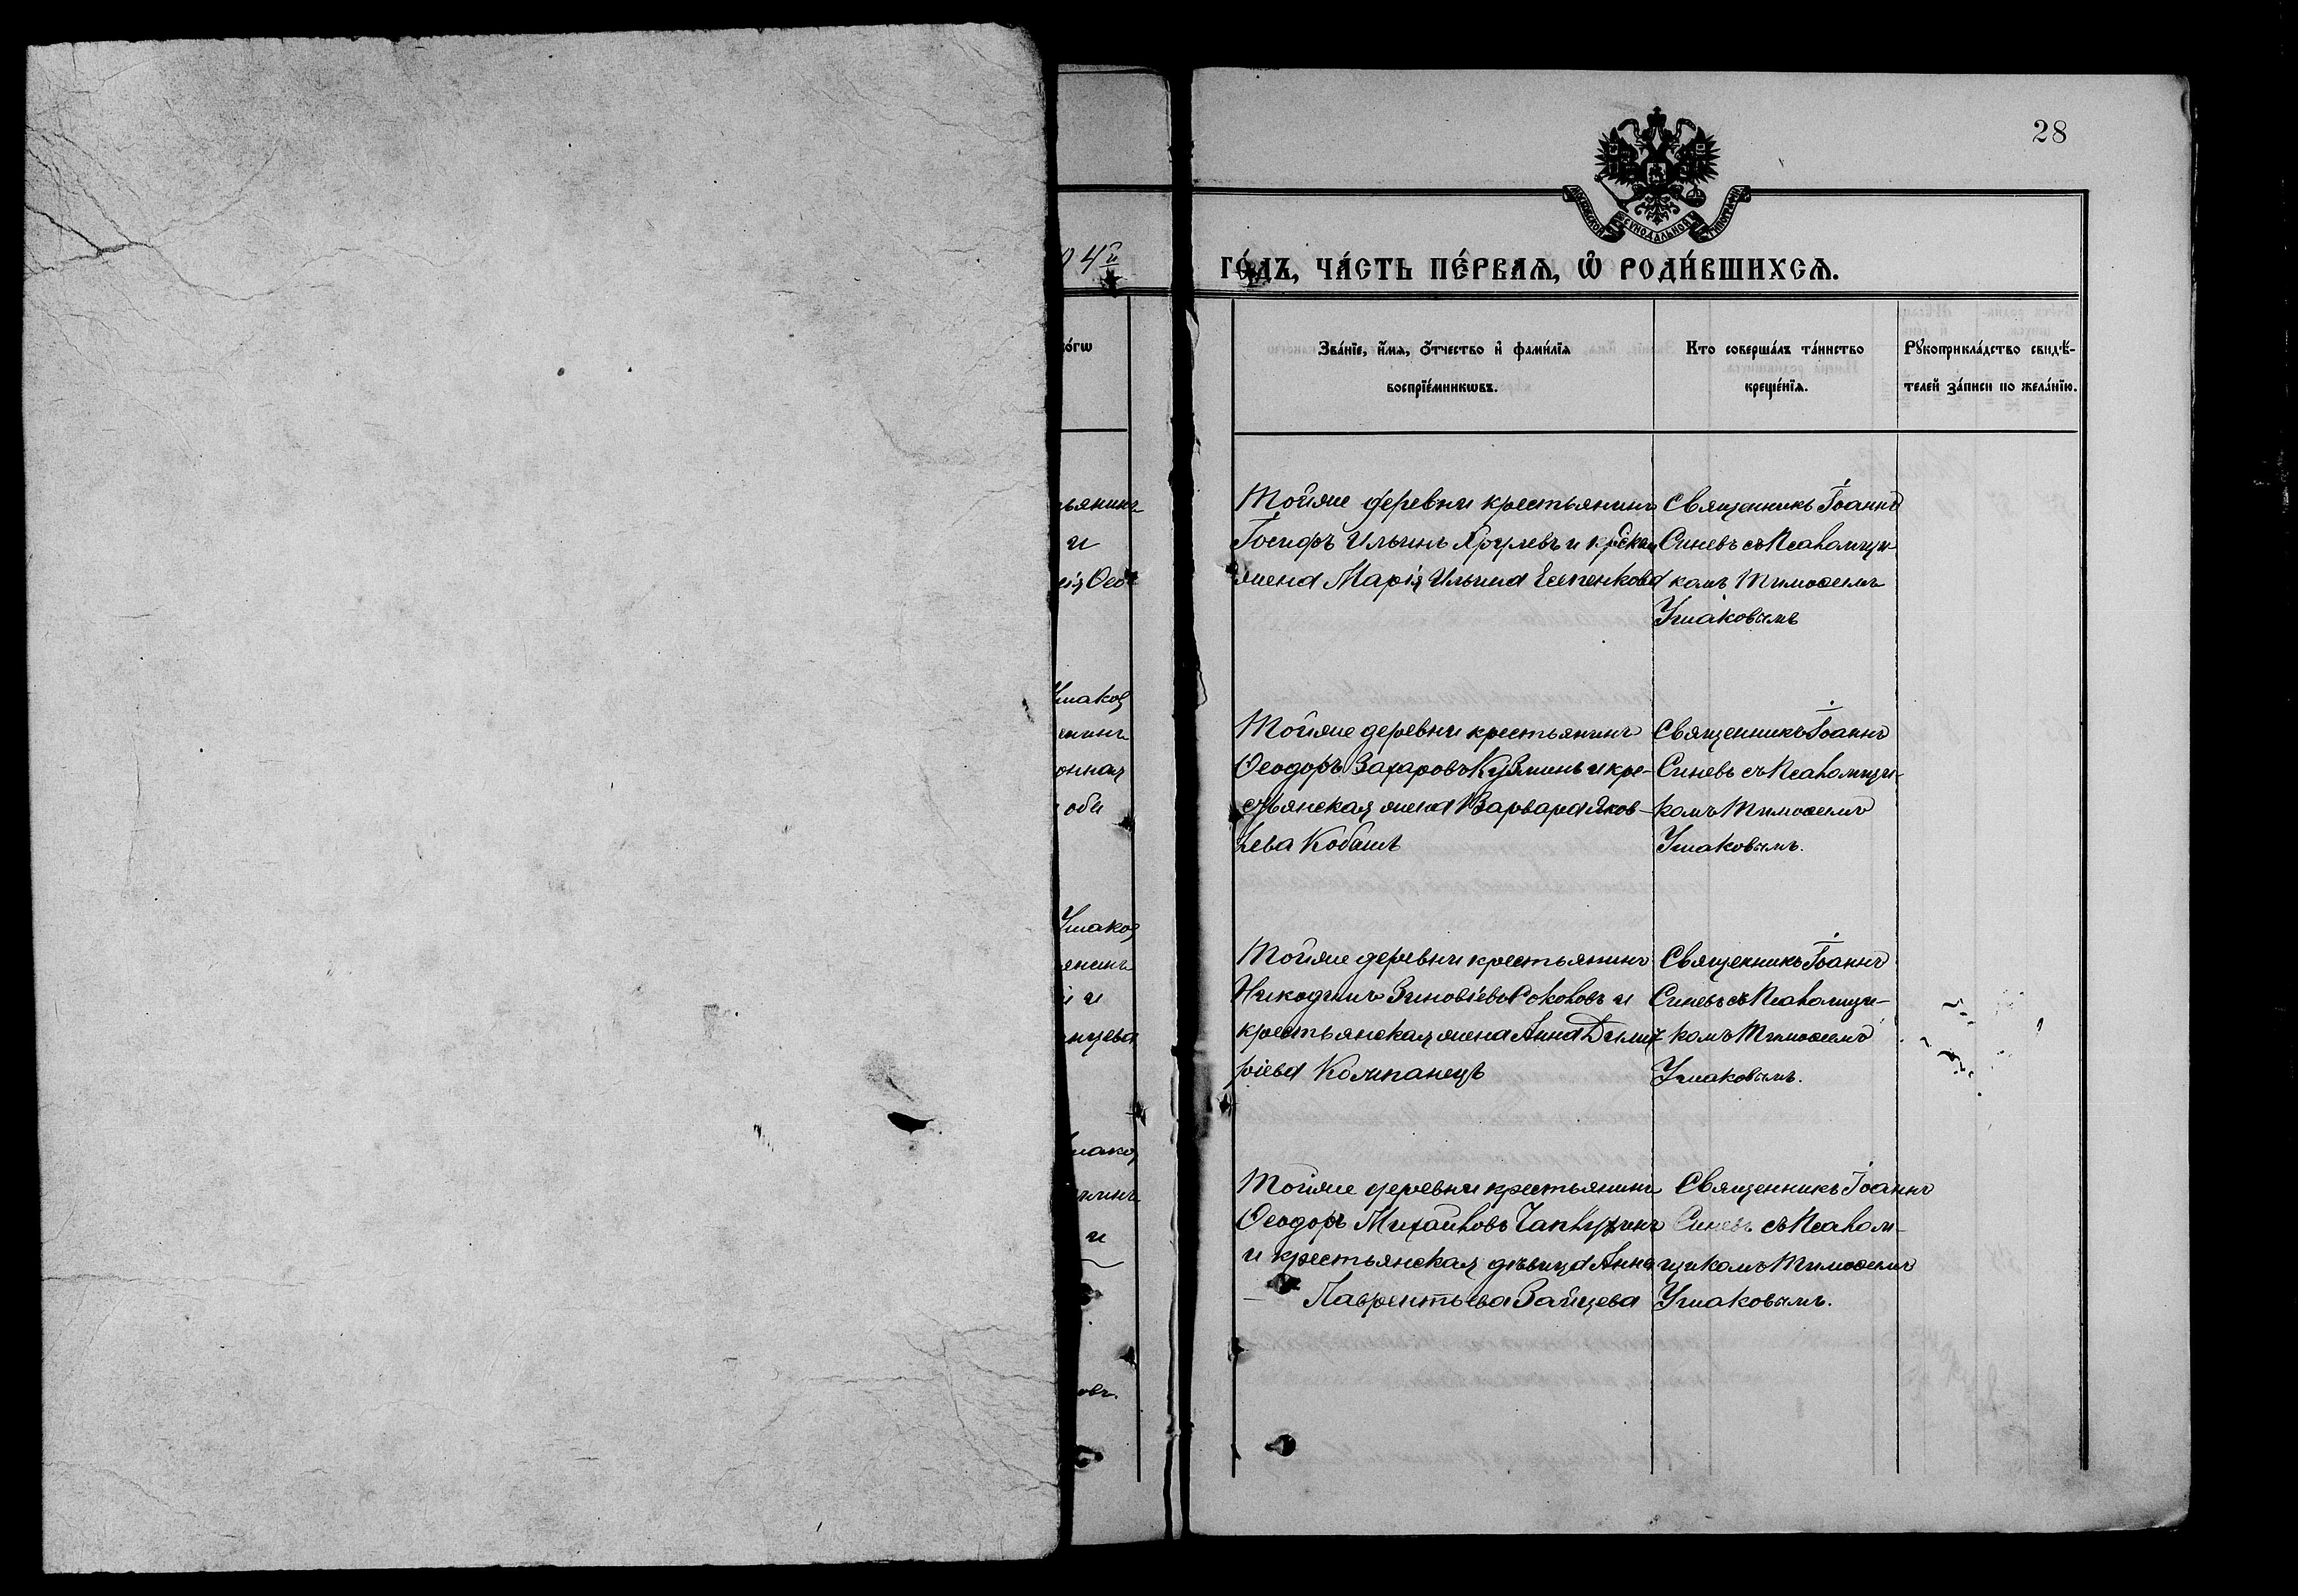 28
МОСКОВСКОЙ СѴНОДАЛЬНОЙ ТИПОГРАФІИ
04й
го́дъ, ча́сть пе́рваѧ, ѡ҆ роди́вшихсѧ.
о́гѡ
Зва́нїе, и҆́мѧ, ѻ҆́тчество и҆ фами́лїѧ
воспрїе́мникѡвъ.
Кто соверша́лъ та́инство
креще́нїѧ.
Рꙋкоприкла́дство свидѣ́-
телей за́писи по жела́нїю.
ьянинъ
и
ія Ѳео
Тойже деревни крестьянинъ
Іосифъ Ильинъ и крѣская
жена Марія Ильина Есипенкова
Священникъ Іоаннъ
Синевъ съ Псаломщи-
комъ Тимоѳеемъ
Ушаковымъ
Ушаков
енинъ
онная
оби
Тойже деревни крестьянинъ
Ѳеодоръ Захаровъ Кузминъ и кре-
стьянская жена Варвара Яков-
лева Кобашъ
Священникъ Іоаннъ
Синевъ съ Псаломщи-
комъ Тимоѳеемъ
Ушаковымъ.
Ушаков
янинъ
й и
нцева
Тойже деревни крестьянинъ
Никодимъ Зиновіевъ Соколовъ и
крестьянская жена Анна Димит-
ріева Компанецъ
Священникъ Іоаннъ
Синевъ съ Псаломщи-
комъ Тимоѳеемъ
Ушаковымъ.
шаков
нинъ
и
овъ.
Тойже деревни крестьянинъ
Ѳеодоръ Михайловъ Чаплыгинъ
и крестьянская дѣвица Анна
Лаврентьева Зайцева
Священникъ Іоаннъ
Синевъ съ Псалом-
щикомъ Тимоѳеемъ
Ушаковымъ.